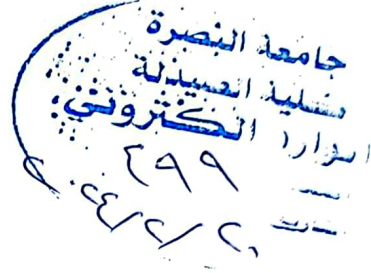 جامعة البصرة
كلية الصيدلة
الوارد الكتروني
٤٩٩
٢٠٢٤/٢/٢٠